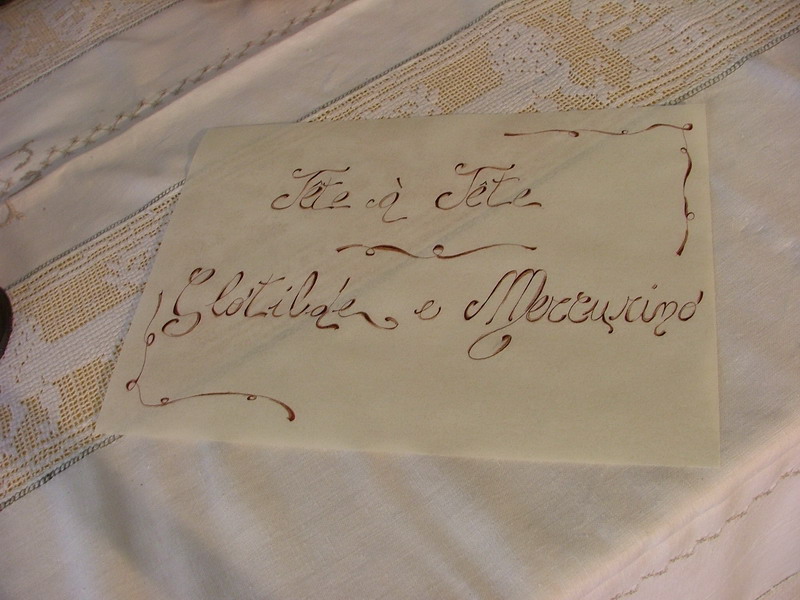 Tête à Tête
Clotilde e Mercurino